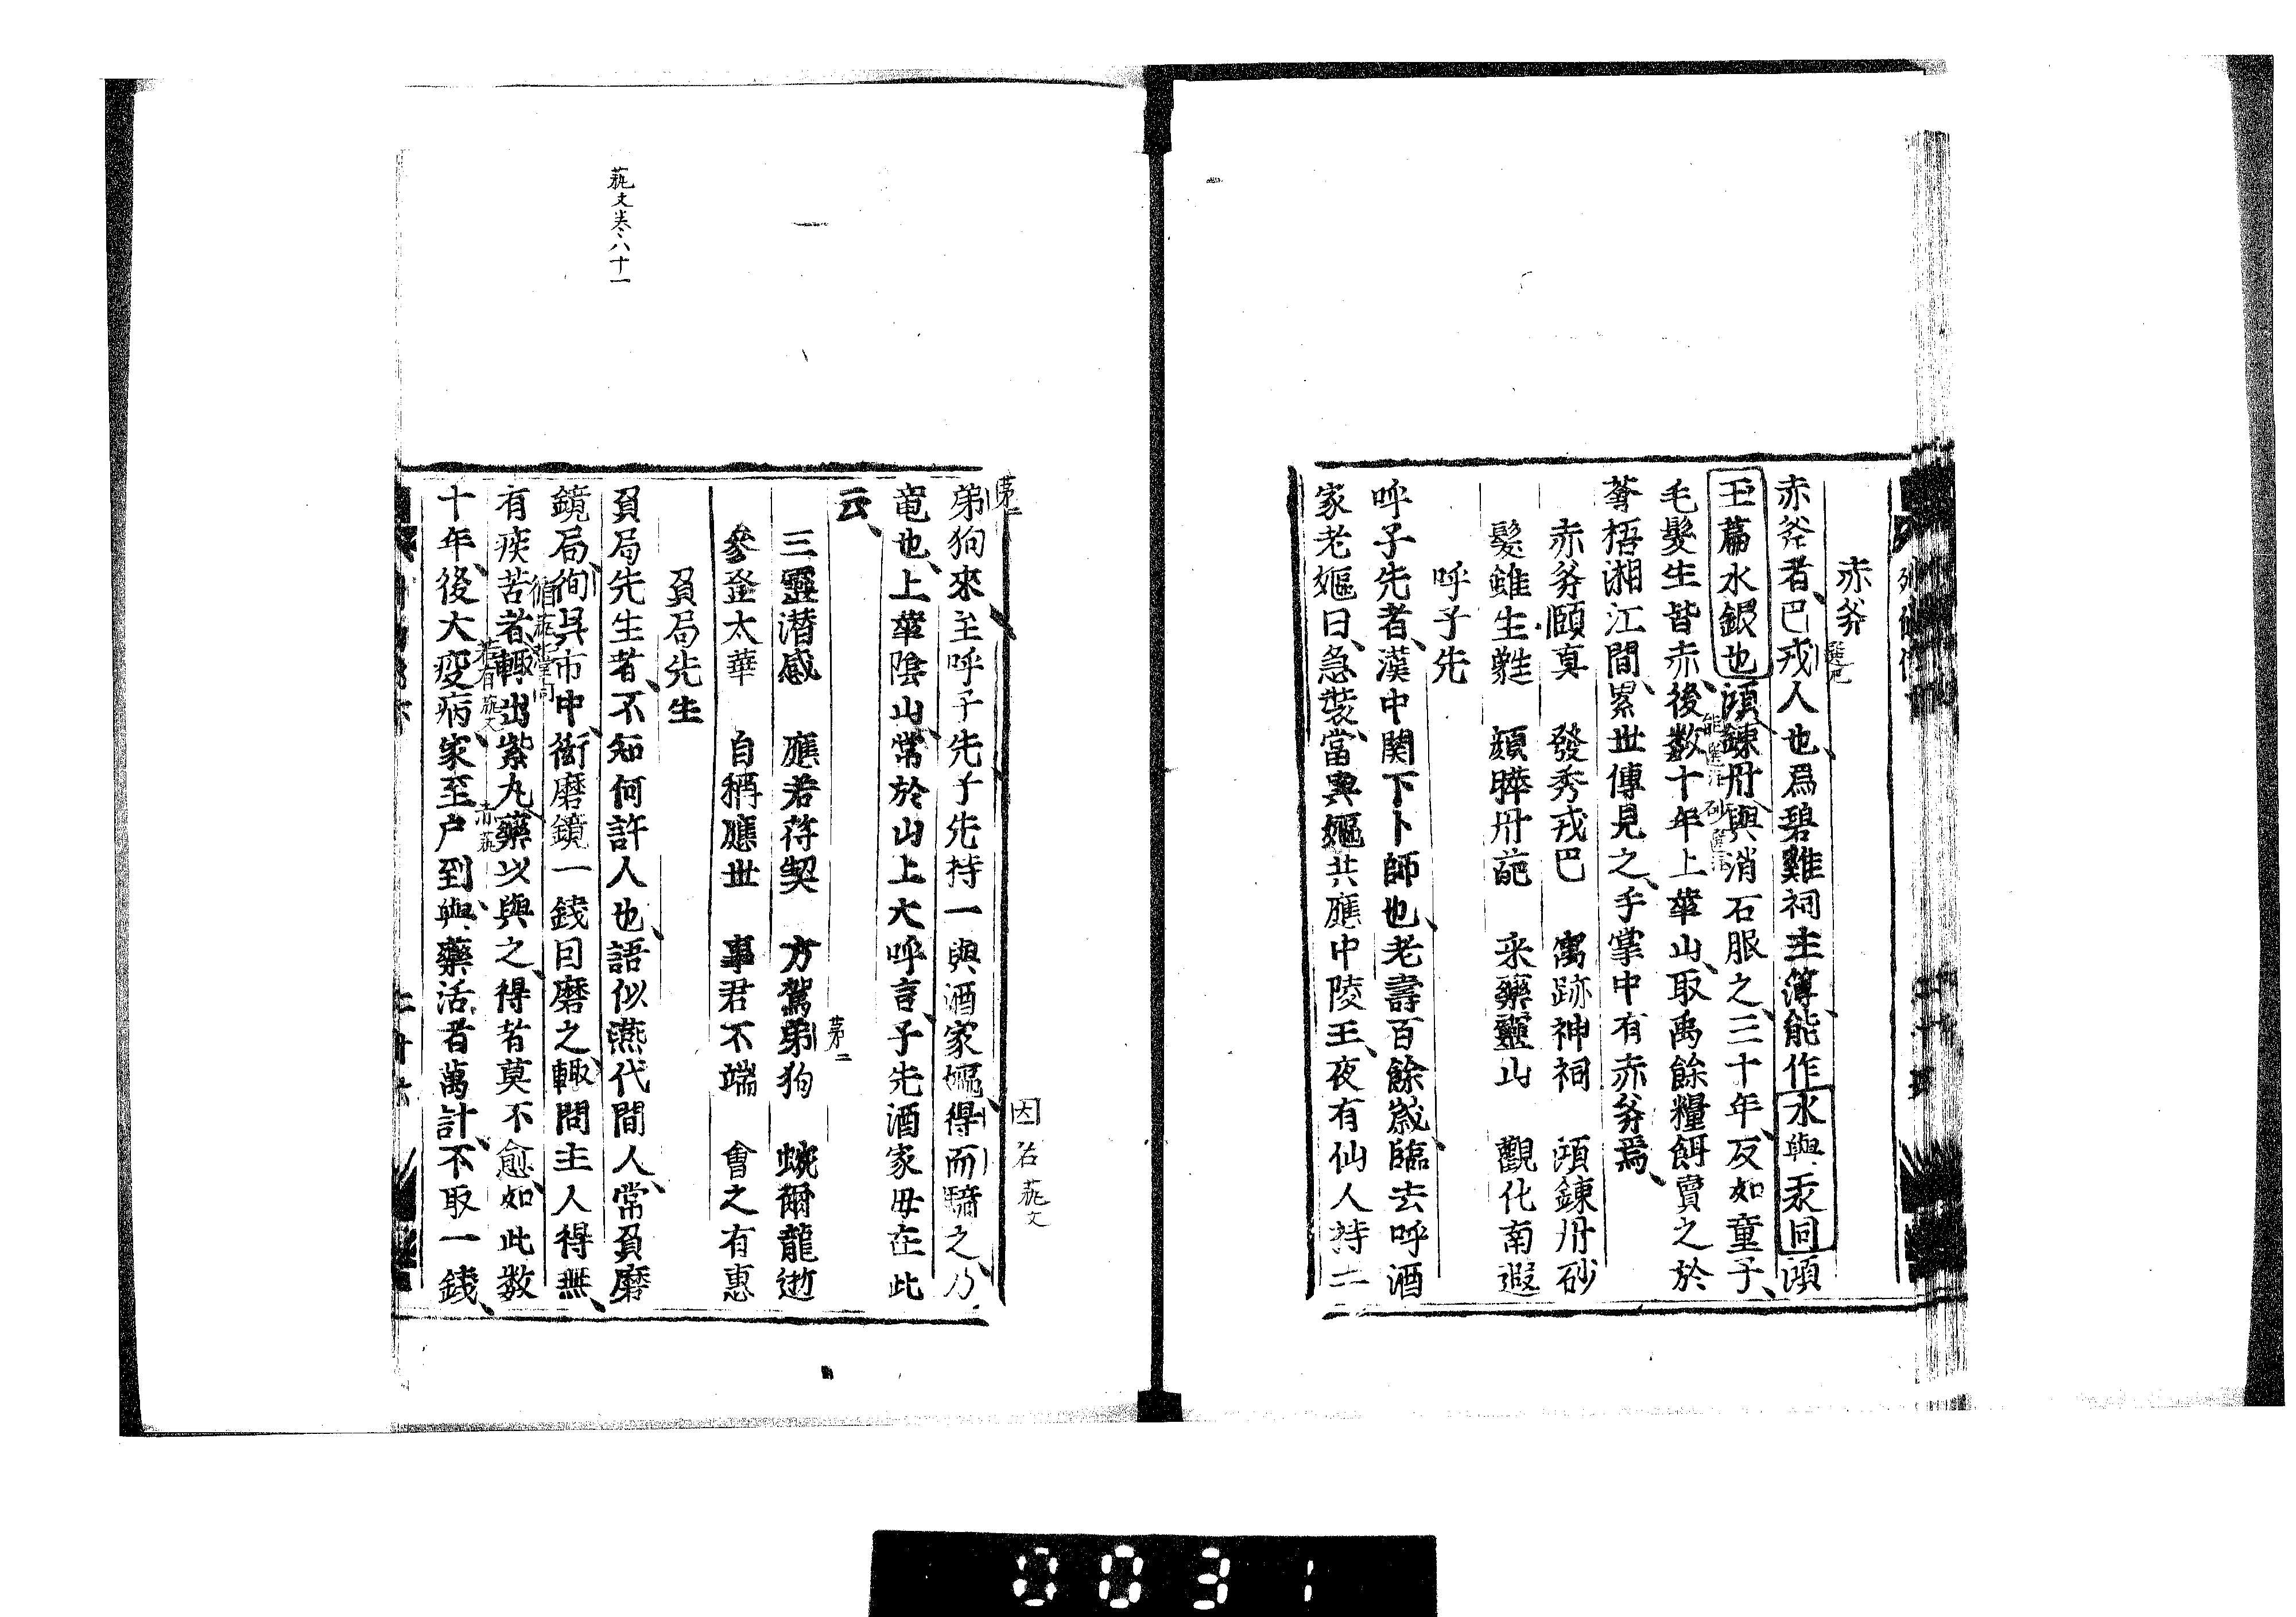 赤斧
赤斧者巴戎人也爲碧雞祠主簿能作水與汞同澒
玉篇水銀也澒鍊丹與消石服之三十年反如童子
毛髮生皆赤後数十年上華山取禹餘糧餌賣之於
蒼梧湘江間累世傳見之手掌中有赤斧焉
赤斧頤真　發秀戎巴　寓跡神祠　澒鍊丹砂
髮雖生　　顔曄丹葩　采藥靈山　觀化南遐
呼子先
呼子先者漢中関下卜師也老壽百餘歲臨去呼酒
家老嫗曰急裝當與嫗共應中陵王夜有仙人持二
第二
因名蓺文
弟狗來至呼子先子先持一與酒家嫗得而騎之乃
竜也上華隂山常於山上大呼言子先酒家母在此
云
第二
三靈潜感　應若符契　方駕弟狗　蜿爾龍逝
參登太華　自稱應世　事君不端　會之有惠
負局先生
負局先生者不知何許人也語似燕代間人常負磨
蓺文卷八十一
鏡局徇吳市中衒磨鏡一錢曰磨之輙問主人得無
有疾苦者輙出紫丸藥以與之得者莫不愈如此数
十年後大疫病家至户到與藥活者萬計不取一錢
0031